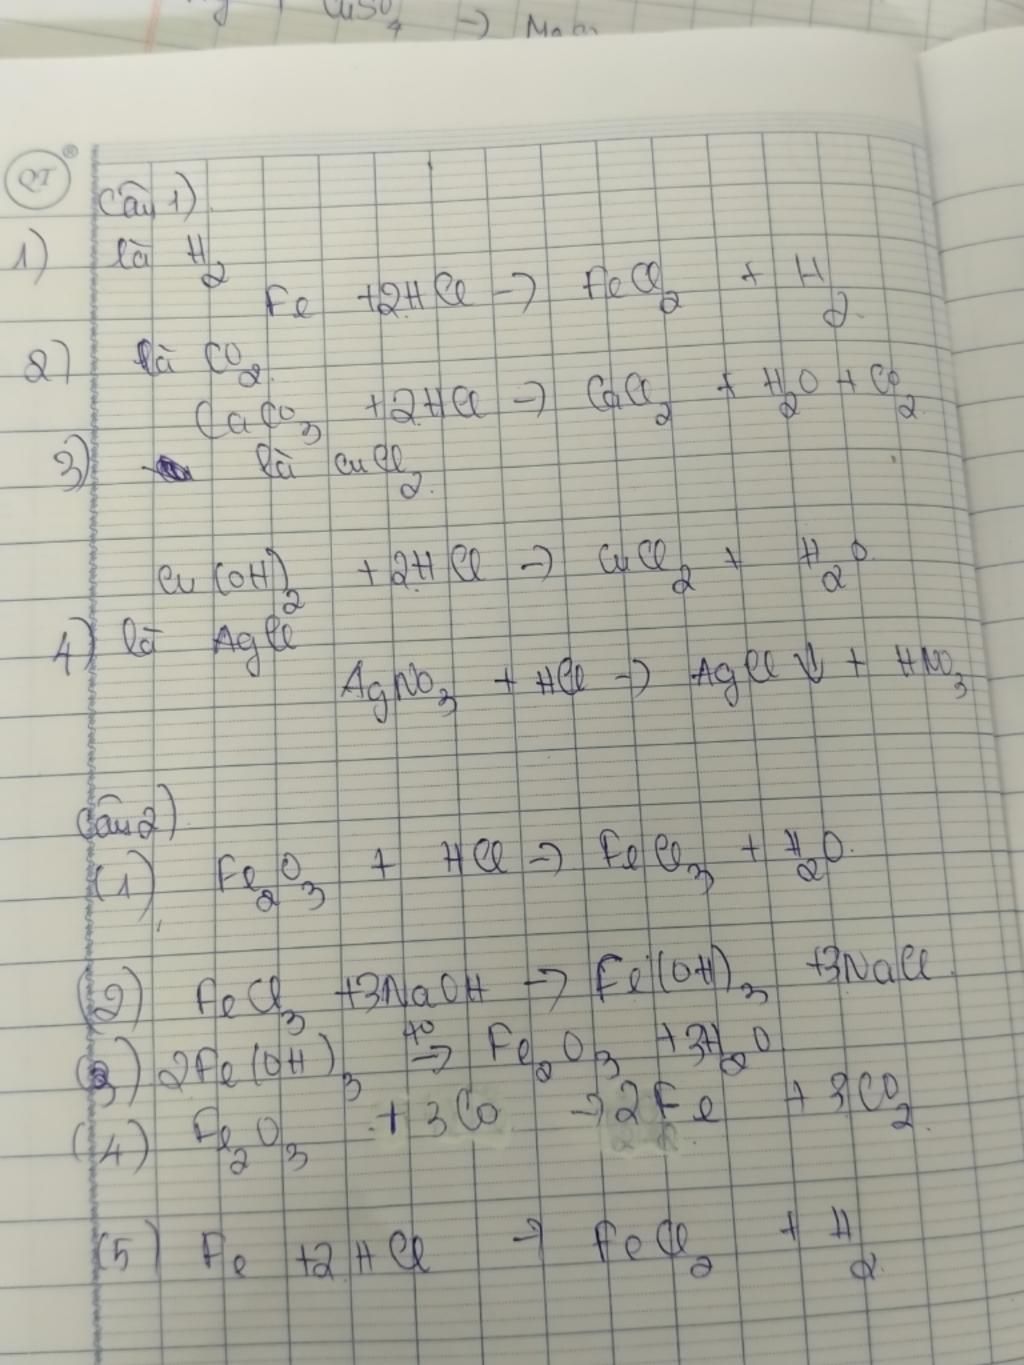 CuSO4 →
QT
Câu 1)
1) là H2
Fe +2HCl → FeCl2 + H2
2) là CO2
CaCO3 +2HCl → CaCl2 + H2O + CO2
3) là CuCl2.
Cu(OH)2 +2HCl → CuCl2 + H2O
4) là AgCl
AgNO3 + HCl → AgCl ↓ + HNO3
Câu 2)
(1) Fe2O3 + HCl → FeCl3 + H2O.
(2) FeCl3 +3NaOH → Fe(OH)3 +3NaCl
(3) 2Fe(OH)3 →
Fe2O3 +3H2O
(4) Fe2O3 + 3CO → 2Fe + 3CO2
(5) Fe +2HCl → FeCl2 + H2